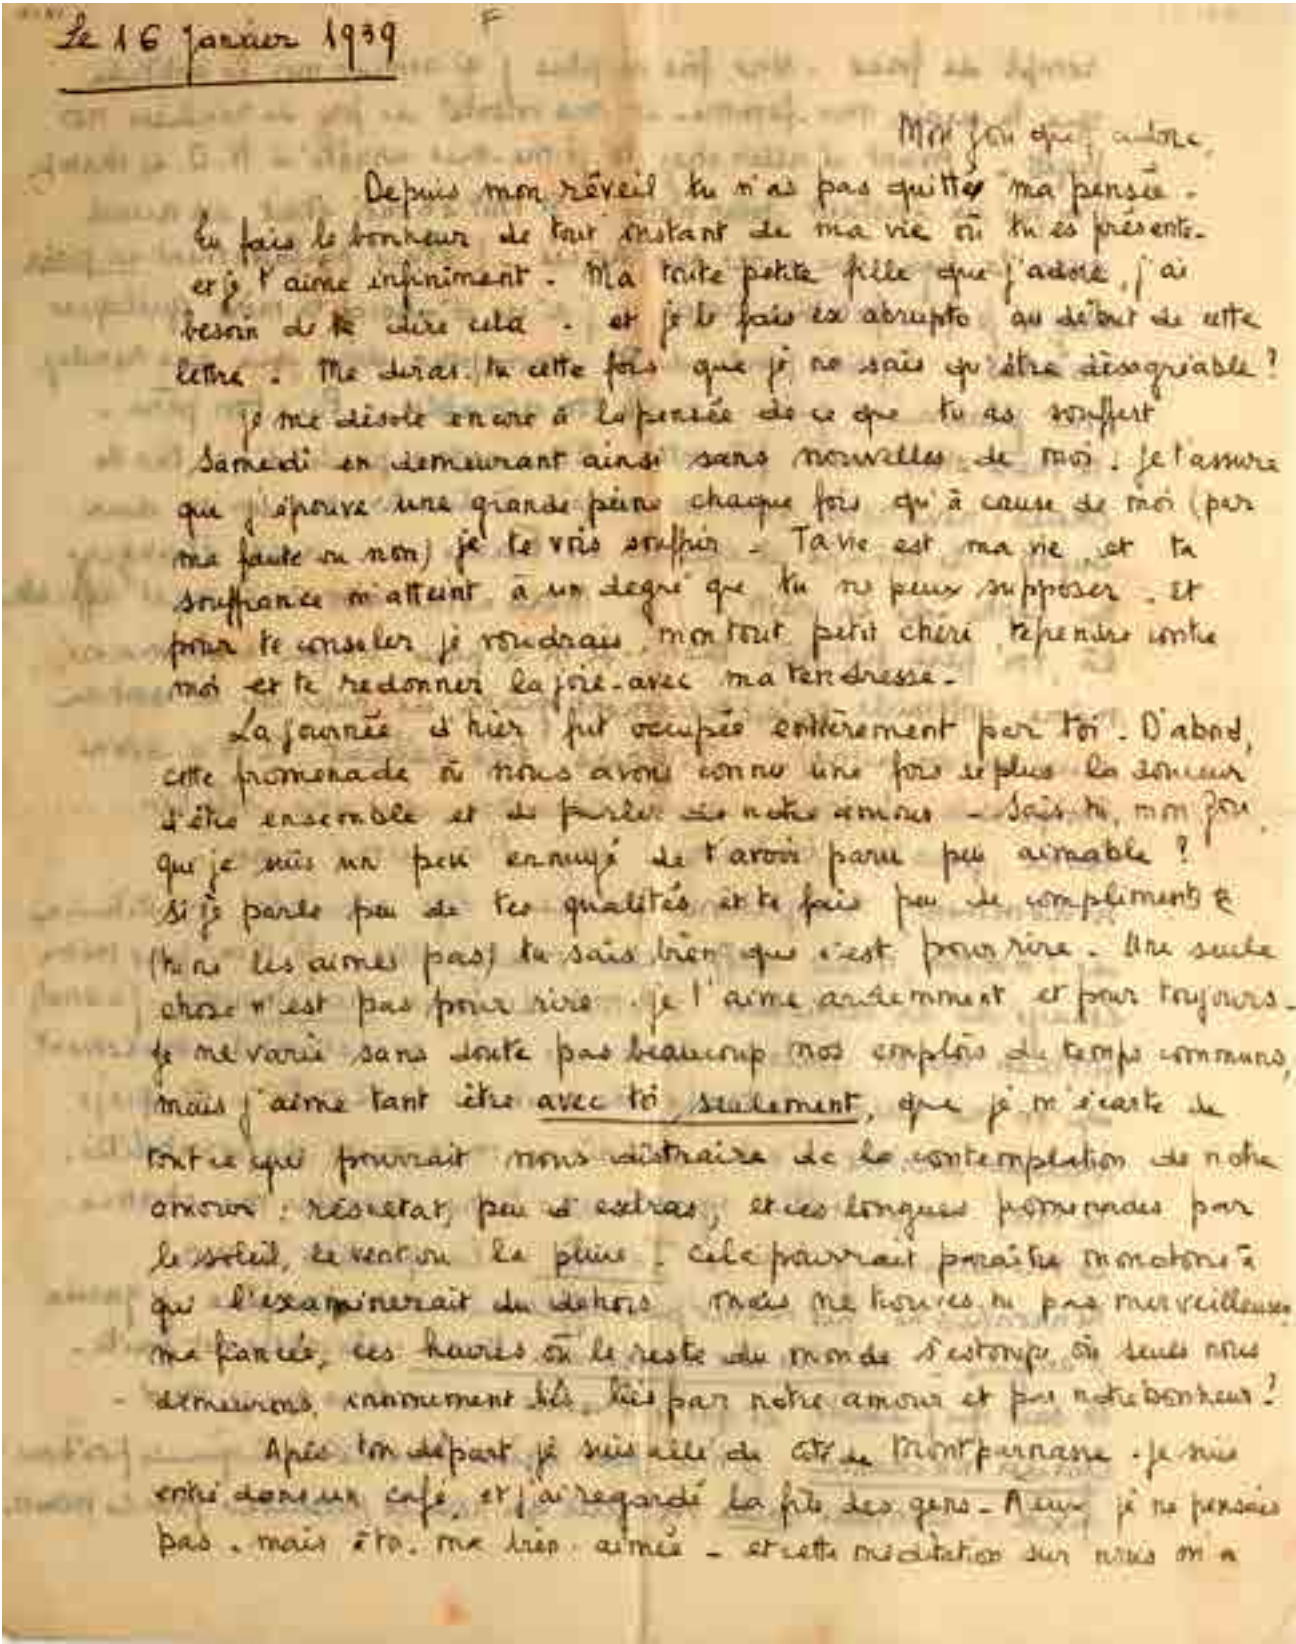 Le 16 Janvier 1939
F
Mon Zou que j'adore,
Depuis mon réveil tu n'as pas quitté ma pensée -
Tu fais le bonheur de tout instant de ma vie où tu es présente -
et je t'aime infiniment. Ma toute petite fille que j'adore, j'ai
besoin de te dire cela . et je le fais ex abrupto au début de cette
lettre . Me diras-tu cette fois que je ne sais qu'être désagréable ?
Je me désole encore à la pensée de ce que tu as souffert
Samedi en demeurant ainsi sans nouvelles de moi. Je t'assure
que j'éprouve une grande peine chaque fois qu'à cause de moi (par
ma faute ou non) je te vois souffrir - Ta vie est ma vie et ta
souffrance m'atteint à un degré que tu ne peux supposer . Et
pour te consoler je voudrais, mon tout petit chéri, te prendre contre
moi et te redonner la joie - avec ma tendresse -
La journée d'hier fut occupée entièrement par toi. D'abord,
cette promenade où nous avons connu une fois de plus la douceur
d'être ensemble et de parler de notre amour - Sais-tu, mon Zou,
que je suis un peu ennuyé de t'avoir paru peu aimable ?
Si je parle peu de tes qualités et te fais peu de compliments
(tu ne les aimes pas) tu sais bien que c'est pour rire - Une seule
chose n'est pas pour rire . je t'aime ardemment et pour toujours -
Je ne varie sans doute pas beaucoup nos emplois du temps communs,
mais j'aime tant être avec toi, seulement, que je m'écarte de
tout ce qui pourrait nous distraire de la contemplation de notre
amour : résultat, peu d'extras, et ces longues promenades par
le soleil, le vent ou la pluie . Cela pourrait paraître monotone à
qui l'examinerait du dehors mais ne trouves-tu pas merveilleuses
ma fiancée, ces heures où le reste du monde s'estompe, où seuls nous
demeurons, énormément liés, liés par notre amour et par notre bonheur ?
Après ton départ je suis allé du côté de Montparnasse . Je suis
entré dans un café, et j'ai regardé la file des gens - A eux je ne pensais
pas . mais à toi . ma bien-aimée - et cette méditation sur nous m'a